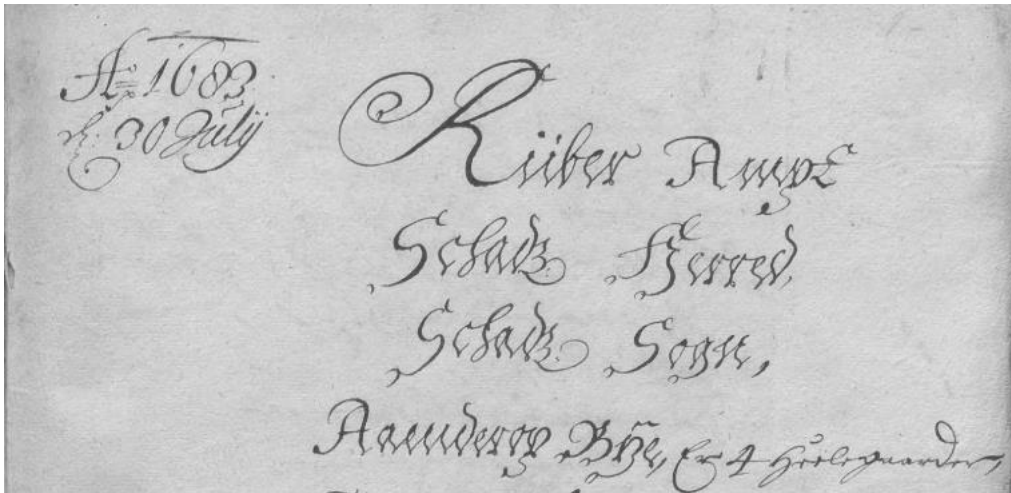 Ao 1683
d. 30 Julij
Riiber Ampt
Schadz Herred,
Schadz Sogn,
Aaunderop Bÿe, Er 4 Heelegaarder,